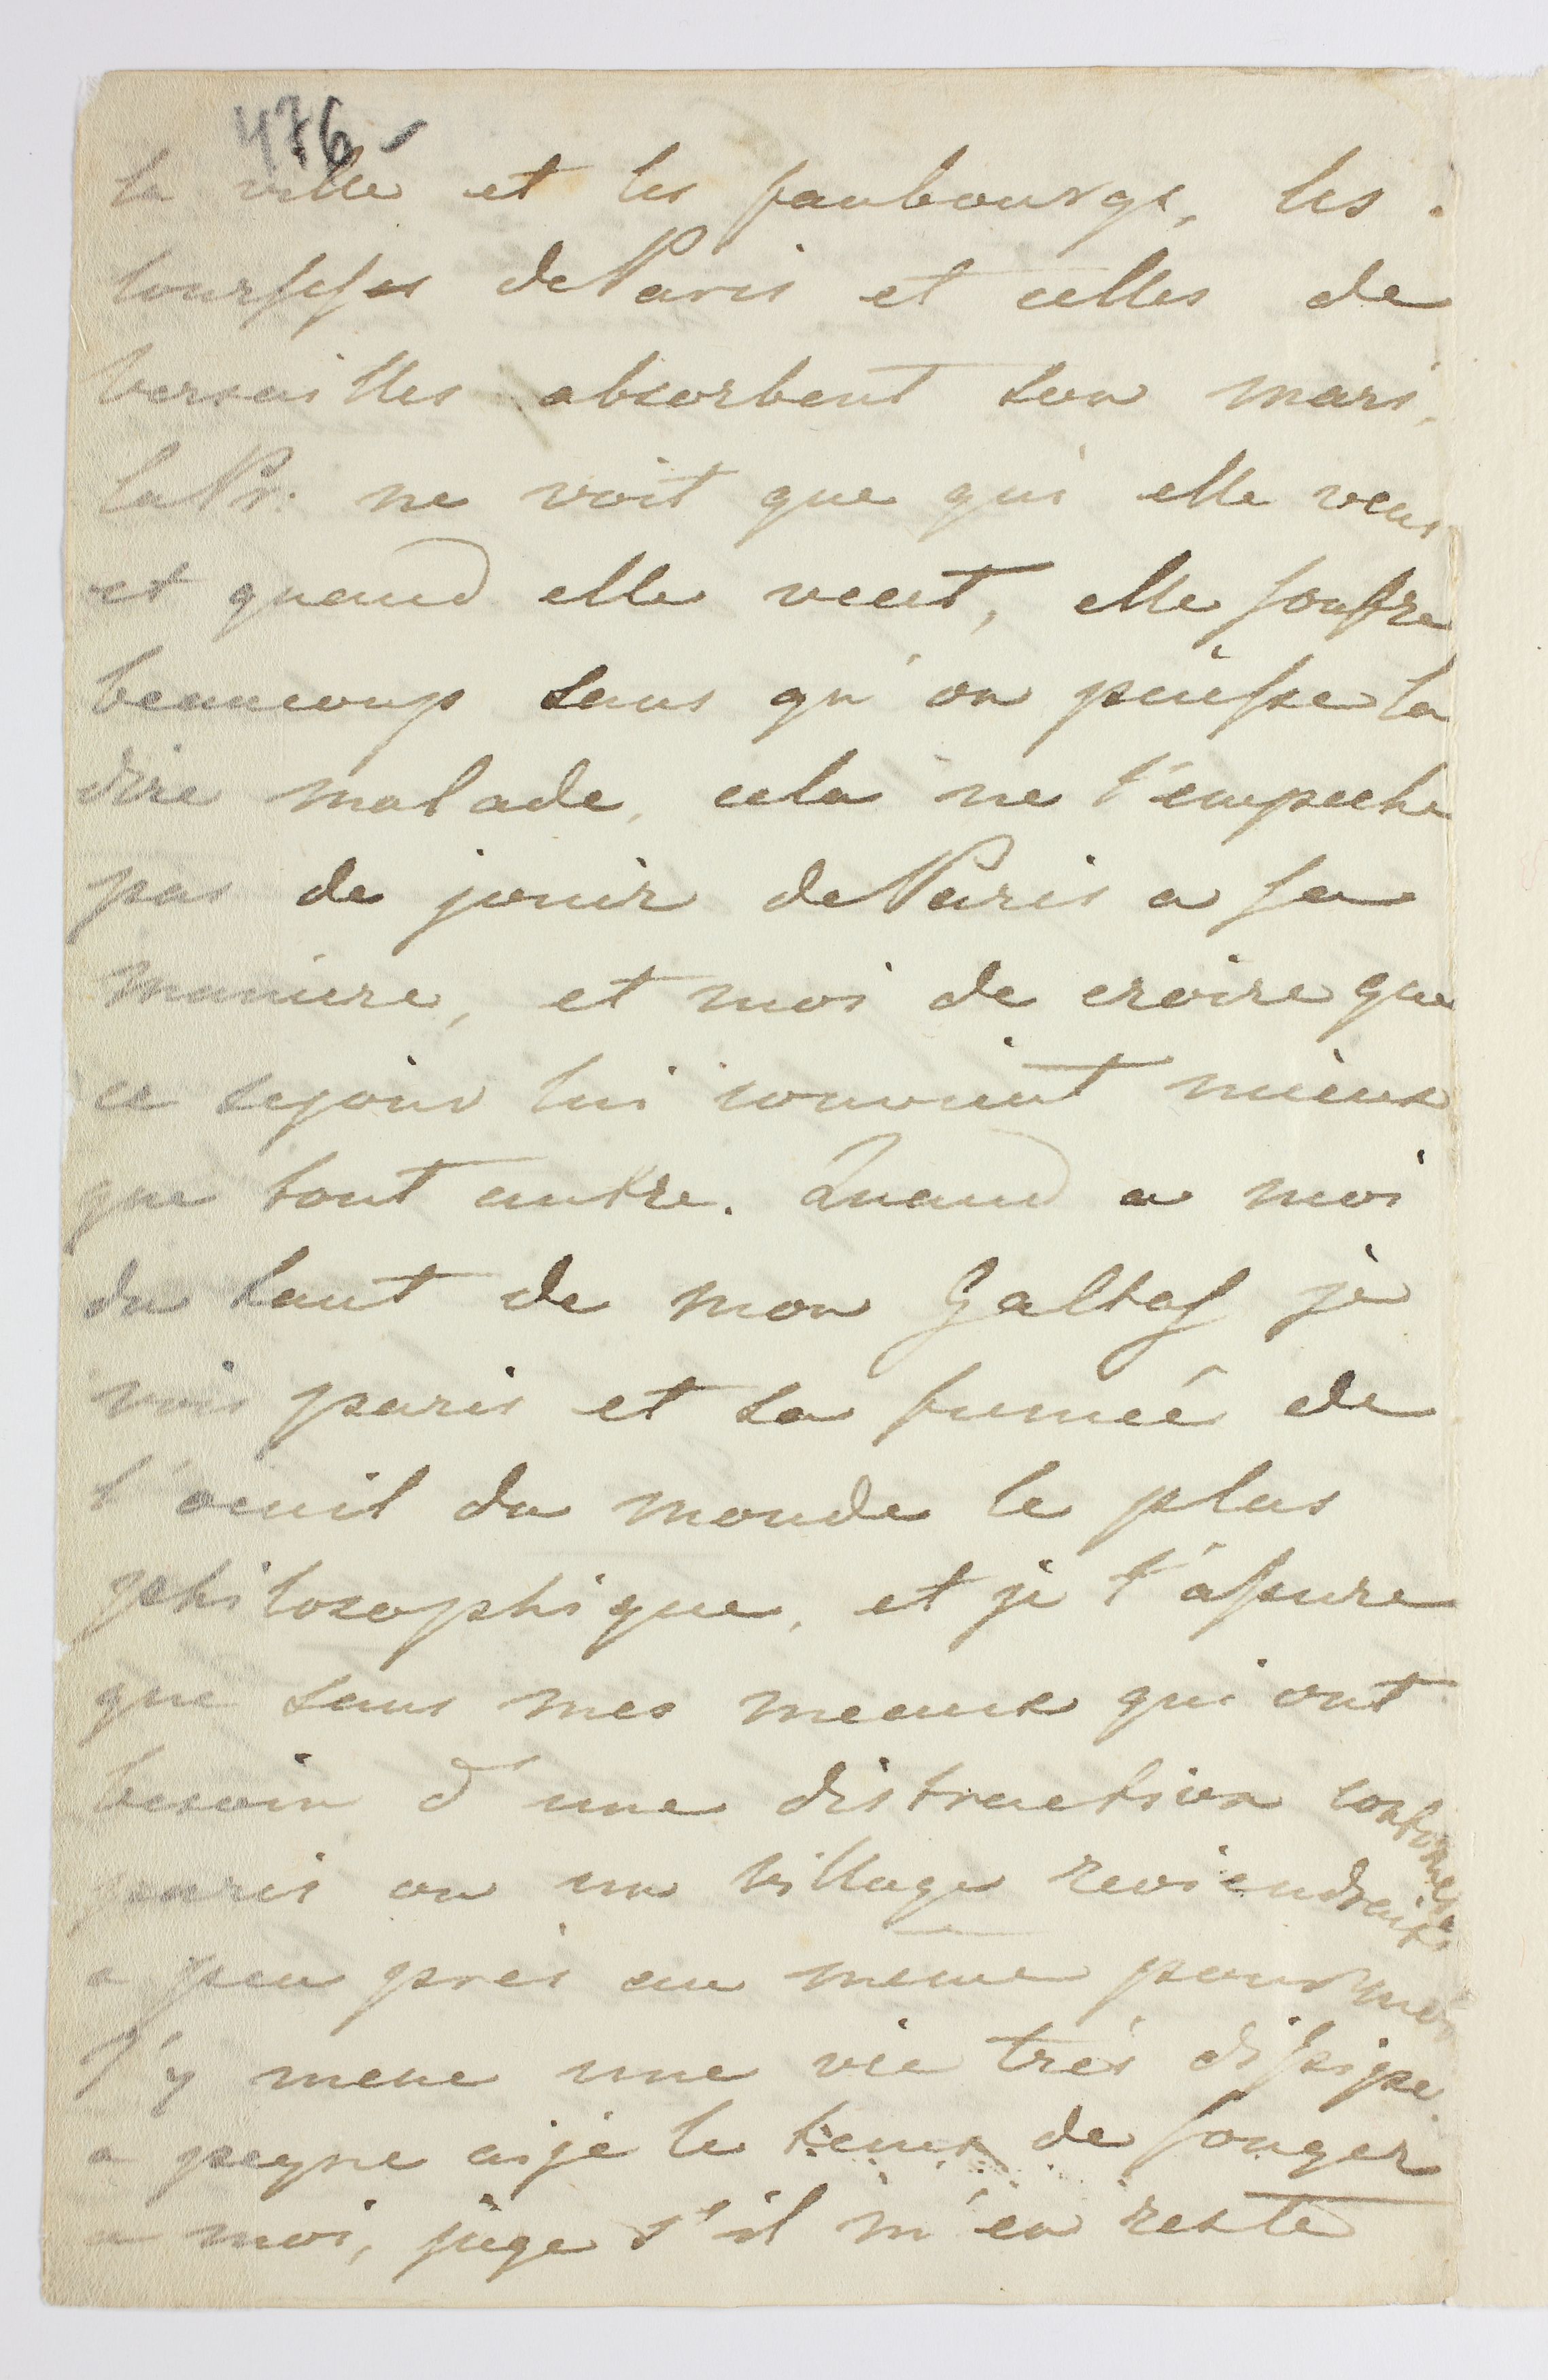 476 -
la ville et les faubourgs, les
courses de Paris et celles de
Versailles absorbent son mari,
la Pr: ne voit que qui elle veut
et quand elle veut, elle souffre
beaucoup sans qu'on puisse la
dire malade, cela ne l'empeche
pas de jouir de Paris a sa
maniere, et moi de croire que
ce sejour lui convient mieux
que tout autre. Quand a moi
du haut de mon Galtaf je
vois paris et sa fumeé de
l'oeuil du monde le plus
philosophique, et je t'assure
que sans mes meaux qui ont
besoin d'une distraction
paris ou un village reviendrait
a peu près au même pour moi
J'y mene une vie très dissipe
a peyne aije le tems de songer
a moi, juge s'il m'en reste